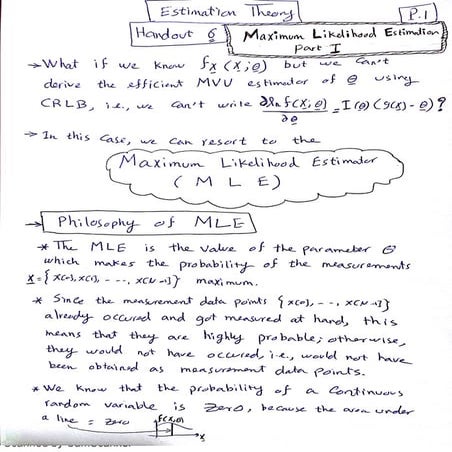 Estimation Theory
P.1
Handout 6
Maximum Likelihood Estimation
Part I
→ What if we know f_X(X;θ) but we can't
derive the efficient MVU estimator of θ using
CRLB, i.e., we can't write ∂ln f(X;θ)/∂θ = I(θ)(g(x)-θ)?
→ In this case, we can resort to the
Maximum Likelihood Estimator
(MLE)
→ Philosophy of MLE
* The MLE is the value of the parameter θ
which makes the probability of the measurements
x={x[0],x[1], ----, x[N-1]} maximum.
* Since the measurement data points {x[0],--, x[N-1]}
already occured and got measured at hand, this
means that they are highly probable; otherwise,
they would not have occured, i.e., would not have
been obtained as measurement data points.
* We know that the probability of a continuous
random variable is zero, because the area under
a line = zero f(x;θ)
x